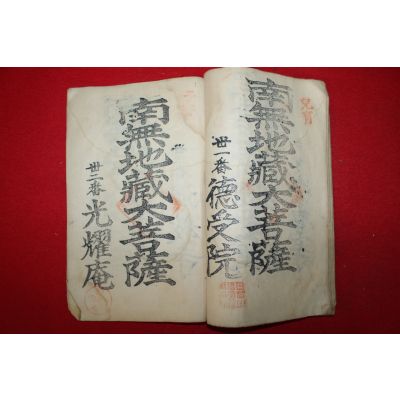 南無地藏大菩薩
丗一番 德受院
南無地藏大菩薩
丗二番 光耀庵